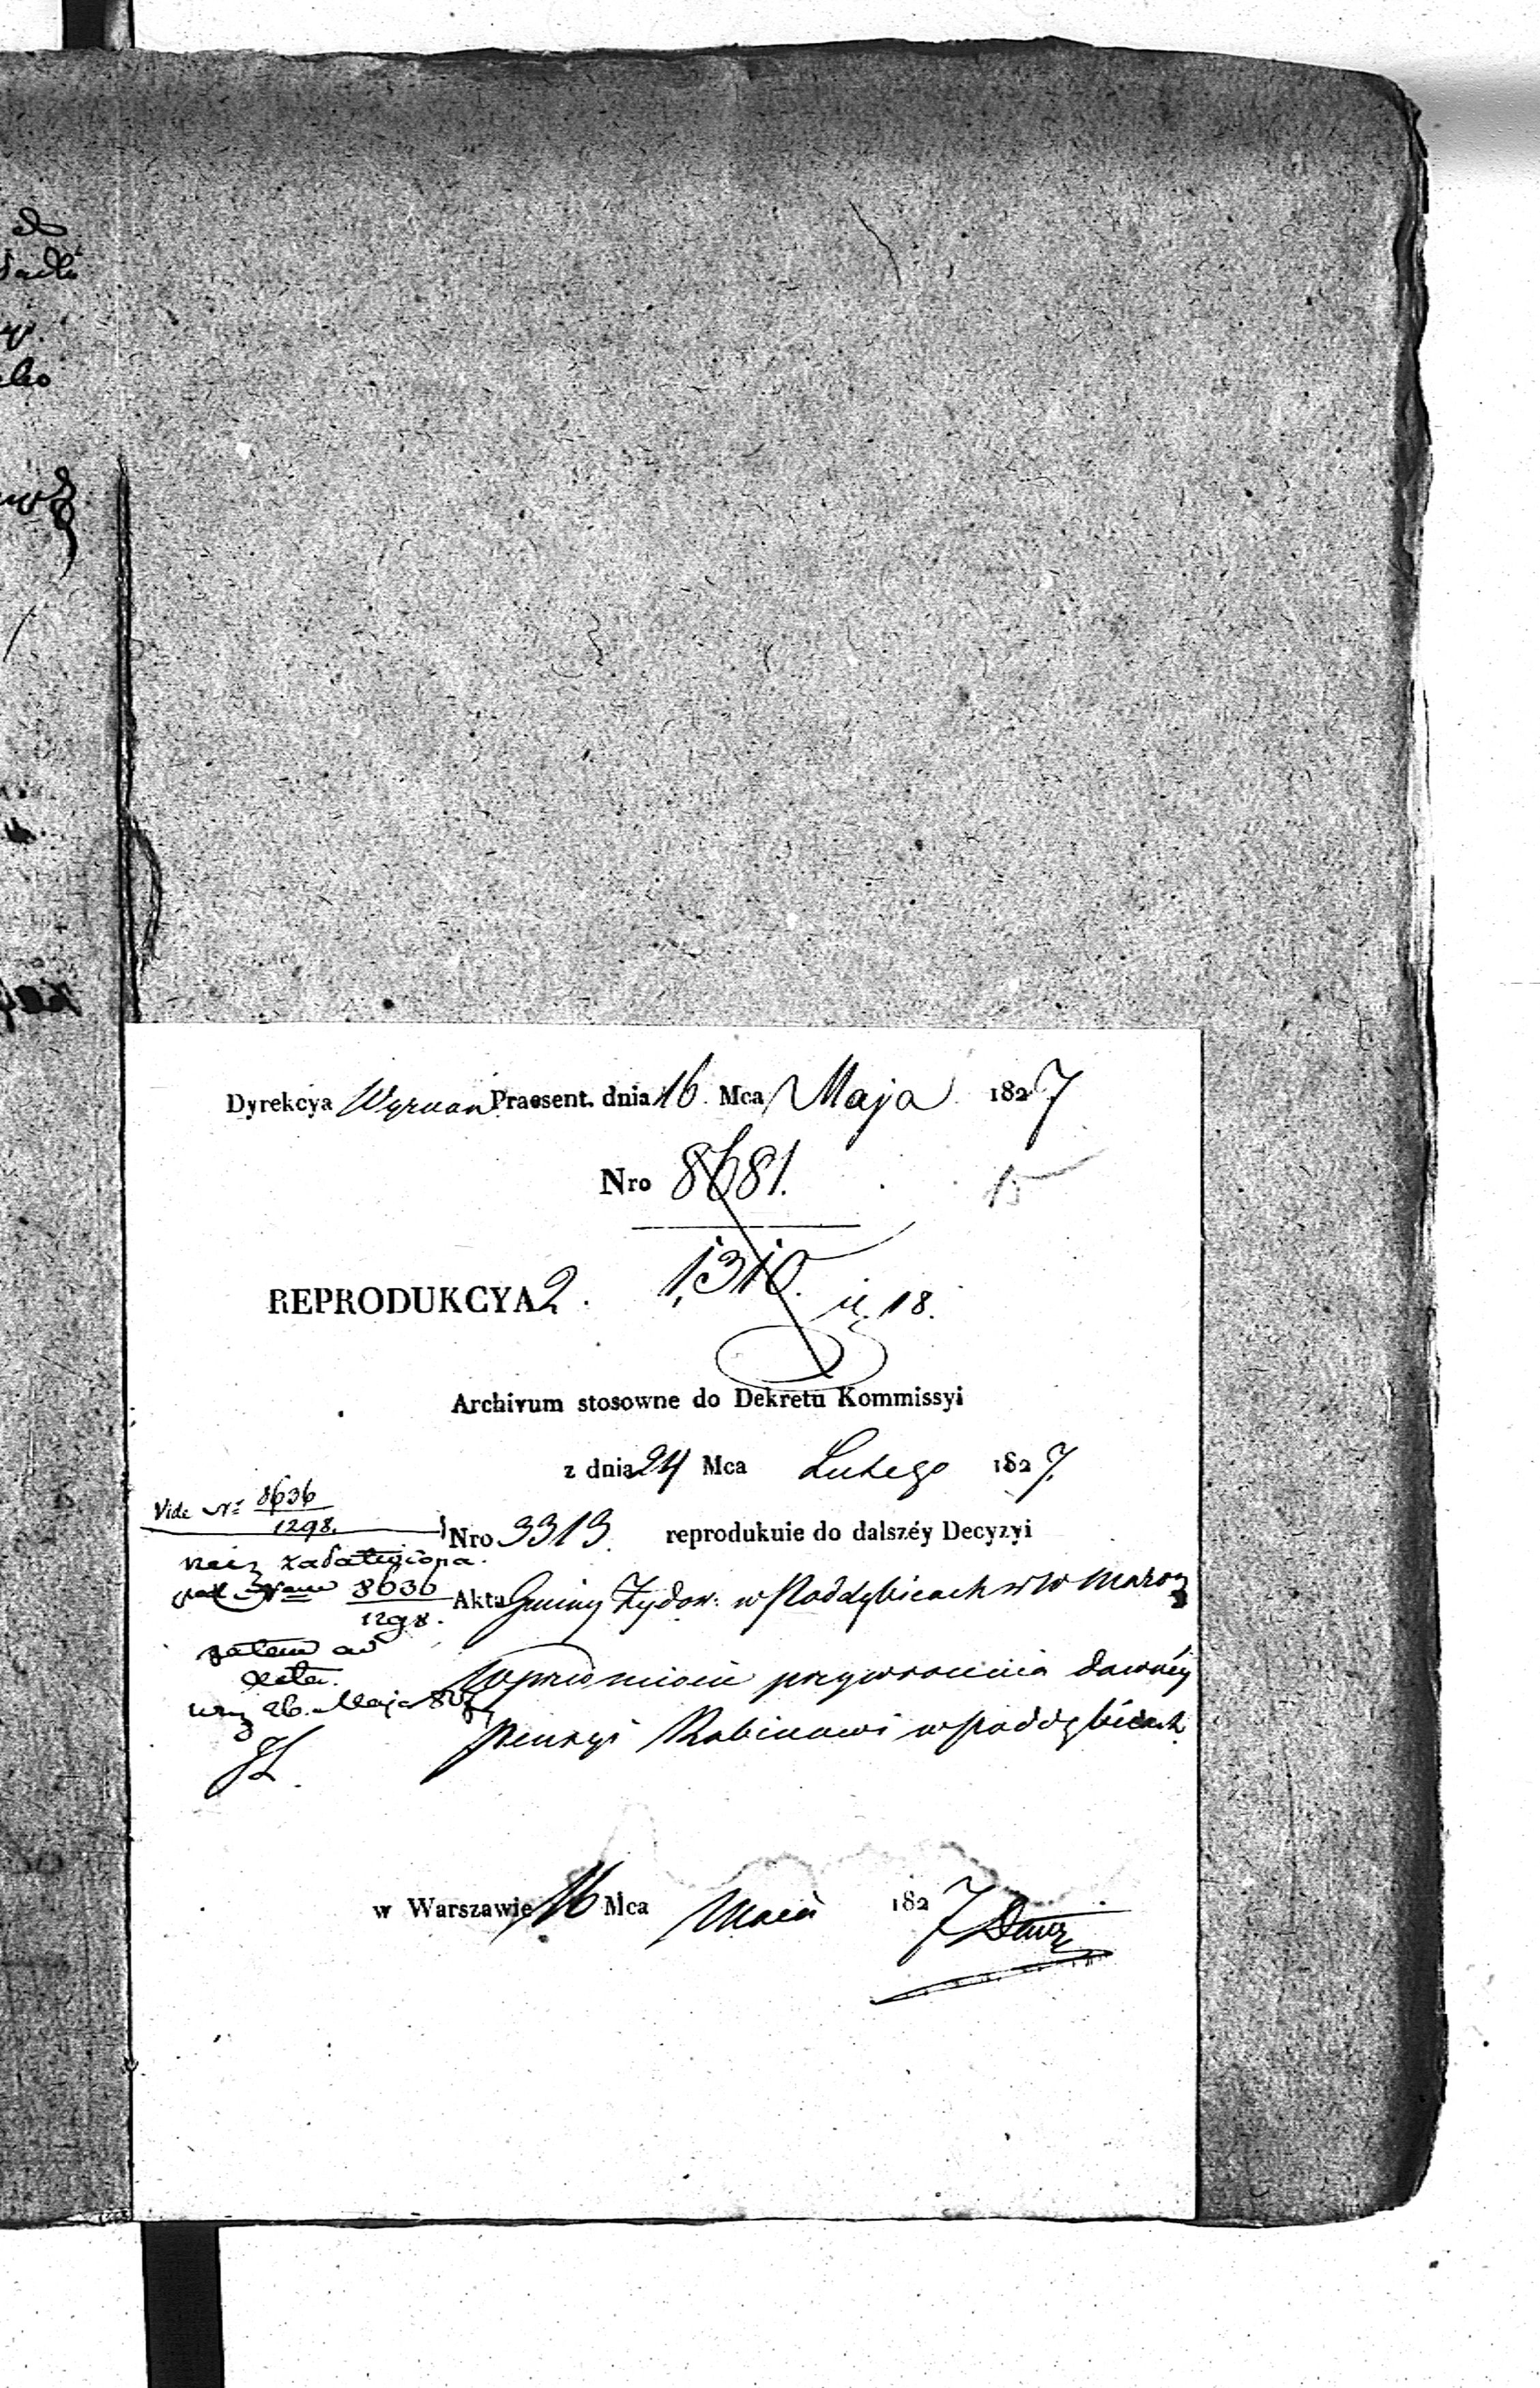 Dyrekcya Wyznań Praesent. dnia 16. Mca Maja 1827
Nro 8681.
15
1,310.
REPRODUKCYA 2.
il. 18.
Archivum stosowne do Dekretu Kommissyi
z dnia 24 Mca Lutego 1827.
Vide Nr 8636
1298.
Nro 3313. reprodukuie do dalszéy Decyzyi
rzecz załatwiona
pod Nrem 8636
1298.
Akta Gminy Żydow: w Poddębicach w W Mazow
zatem ad
acta.
26. Maja 827
względem przywrócenia dawnéy
Pensyi Rabinowi w Poddębicach
w Warszawie 16 Mca Maia 1827